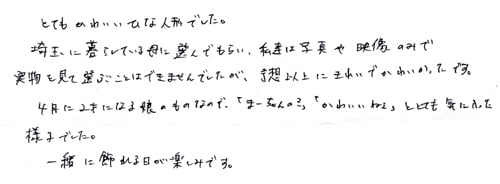 とてもかわいいひな人形でした。
埼玉に暮らしている母に選んでもらい、私達は写真や映像のみで
実物を見て選ぶことはできませんでしたが、予想以上にきれいでかわいかったです。
4月に2才になる娘のものなので、「まーちゃんの?」「かわいいねぇ」ととても気に入った
様子でした。
一緒に飾れる日が楽しみです。